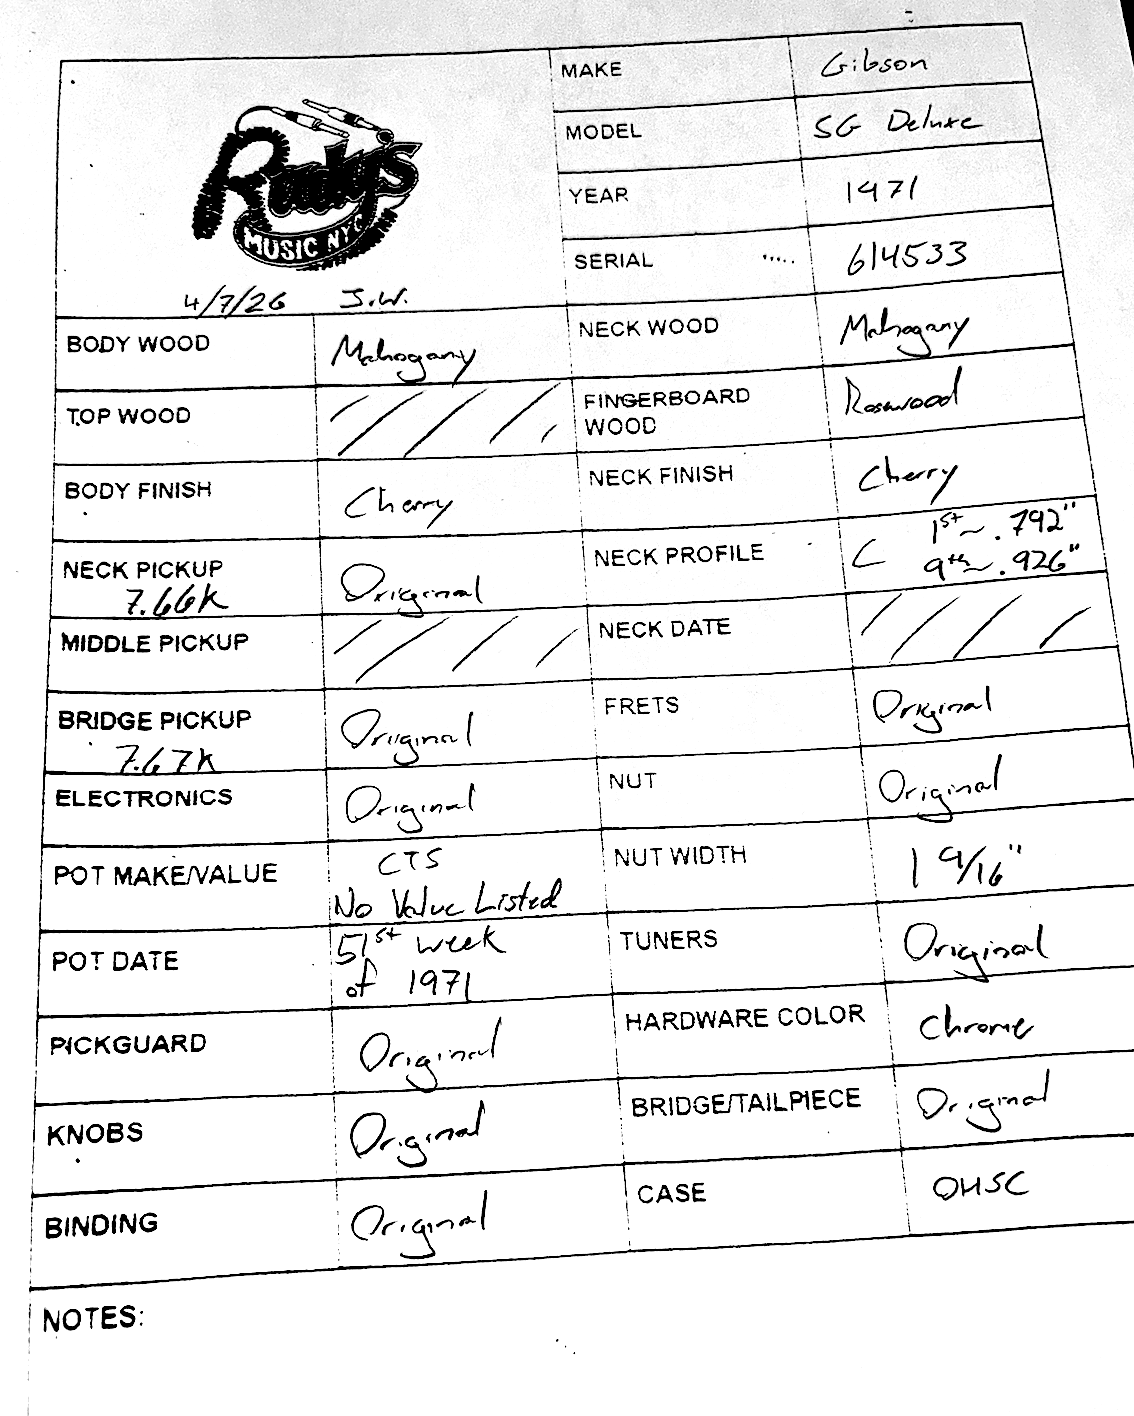 MAKE Gibson
MODEL SG Deluxe
YEAR 1971
SERIAL ..... 614533
Rudy's
MUSIC NYC
4/7/26 J.W.
BODY WOOD Mahogany NECK WOOD Mahogany
TOP WOOD FINGERBOARD WOOD Rosewood
BODY FINISH Cherry NECK FINISH Cherry
NECK PICKUP 7.66K Original NECK PROFILE C 1st ~ .792" 9th ~ .926"
MIDDLE PICKUP NECK DATE
BRIDGE PICKUP 7.67K Original FRETS Original
ELECTRONICS Original NUT Original
POT MAKE/VALUE CTS No Value Listed NUT WIDTH 1 9/16"
POT DATE 51st week of 1971 TUNERS Original
PICKGUARD Original HARDWARE COLOR Chrome
KNOBS Original BRIDGE/TAILPIECE Original
BINDING Original CASE OHSC
NOTES: